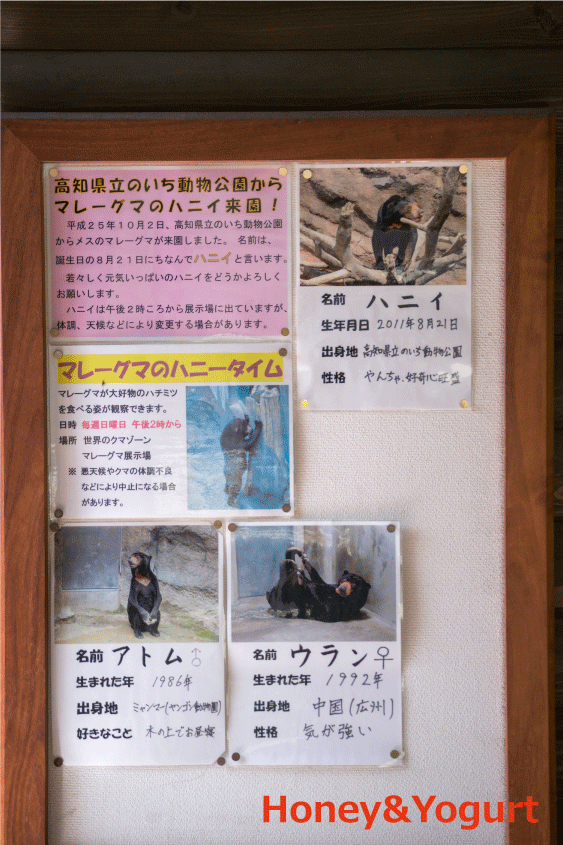 高知県立のいち動物公園から
マレーグマのハニイ来園！
平成２５年１０月２日、高知県立のいち動物公園
からメスのマレーグマが来園しました。 名前は、
誕生日の８月２１日にちなんでハニイと言います。
若々しく元気いっぱいのハニイをどうかよろしく
お願いします。
ハニイは午後２時ころから展示場に出ていますが、
体調、天候などにより変更する場合があります。
名前 ハニイ
生年月日 2011年8月21日
出身地 高知県立のいち動物公園
性格 やんちゃ、好奇心旺盛
マレーグマのハニータイム
マレーグマが大好物のハチミツ
を食べる姿が観察できます。
日時 毎週日曜日 午後２時から
場所 世界のクマゾーン
マレーグマ展示場
※ 悪天候やクマの体調不良
などにより中止になる場合
があります。
名前 アトム♂
生まれた年 1986年
出身地 ミャンマー(ヤンゴン動物園)
好きなこと 木の上でお昼寝
名前 ウラン♀
生まれた年 1992年
出身地 中国(広州)
性格 気が強い
Honey&Yogurt